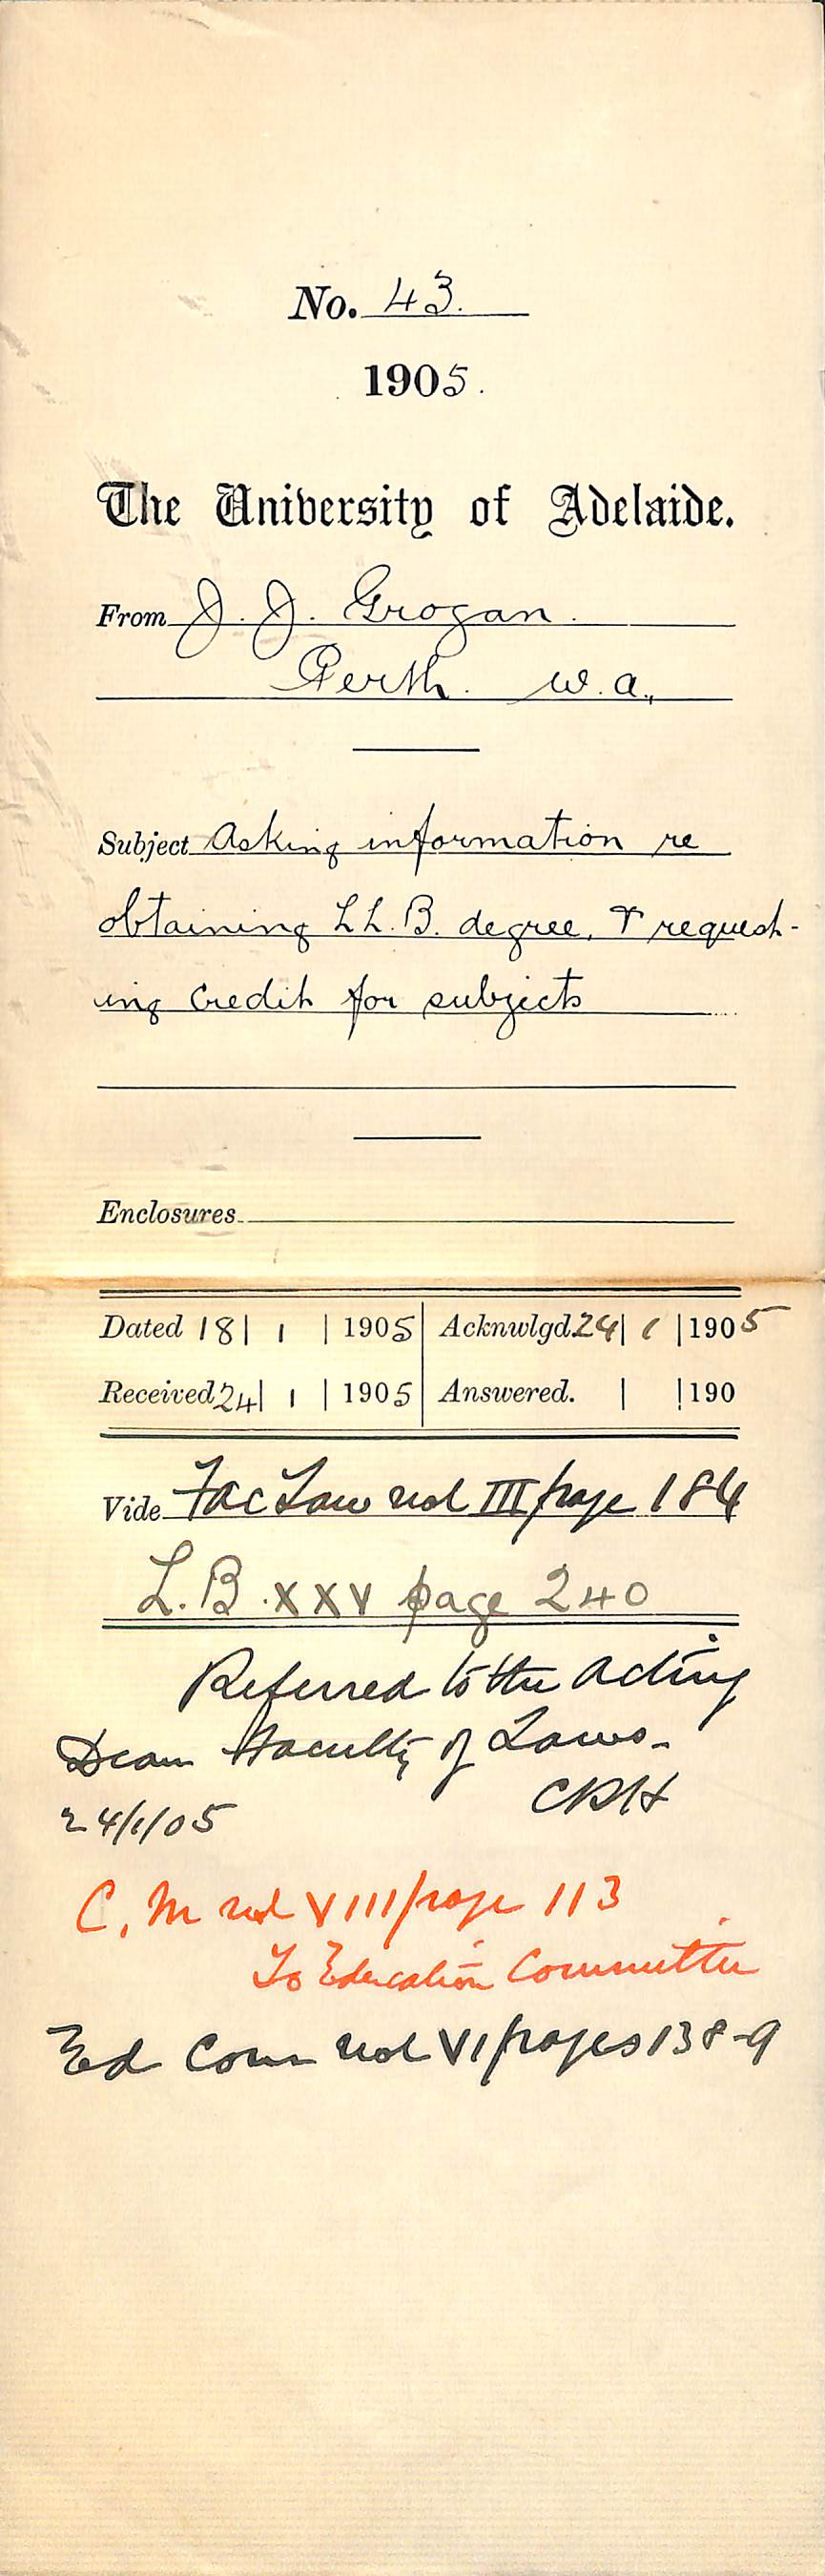 No. 43.
1905.
The University of Adelaide.
From J. J. Grogan.
Perth. W.A.,
Subject Asking information re
obtaining LL.B. degree, & request-
ing Credit for subjects
Enclosures
Dated 18| 1 | 1905 | Acknwlgd. 24| 1 |1905
Received 24| 1 | 1905 | Answered. | |190
Vide Fac Law vol III page 184
L.B. XXV page 240
Referred to the Acting
Dean Faculty of Laws.
CRH
24/1/05
C.M vol VIII page 113
To Education Committee
Ed Com vol VI pages 138-9